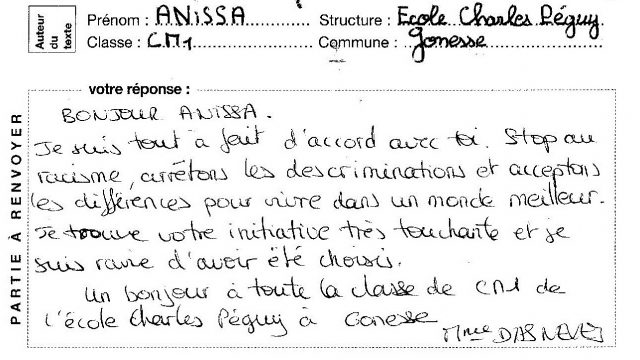 Auteur du texte
Prénom : ANISSA Structure : Ecole Charles Péguy
Classe : CM1 Commune : Gonesse
votre réponse :
PARTIE À RENVOYER
BONJOUR ANISSA.
Je suis tout à fait d'accord avec toi. Stop au
racisme, arrêtons les descriminations et acceptons
les différences pour vivre dans un monde meilleur.
Je trouve votre initiative très touchante et je
suis ravie d'avoir été choisis.
Un bonjour à toute la classe de CM1 de
l'école Charles Péguy à Gonesse
Mme DIAS NEVES